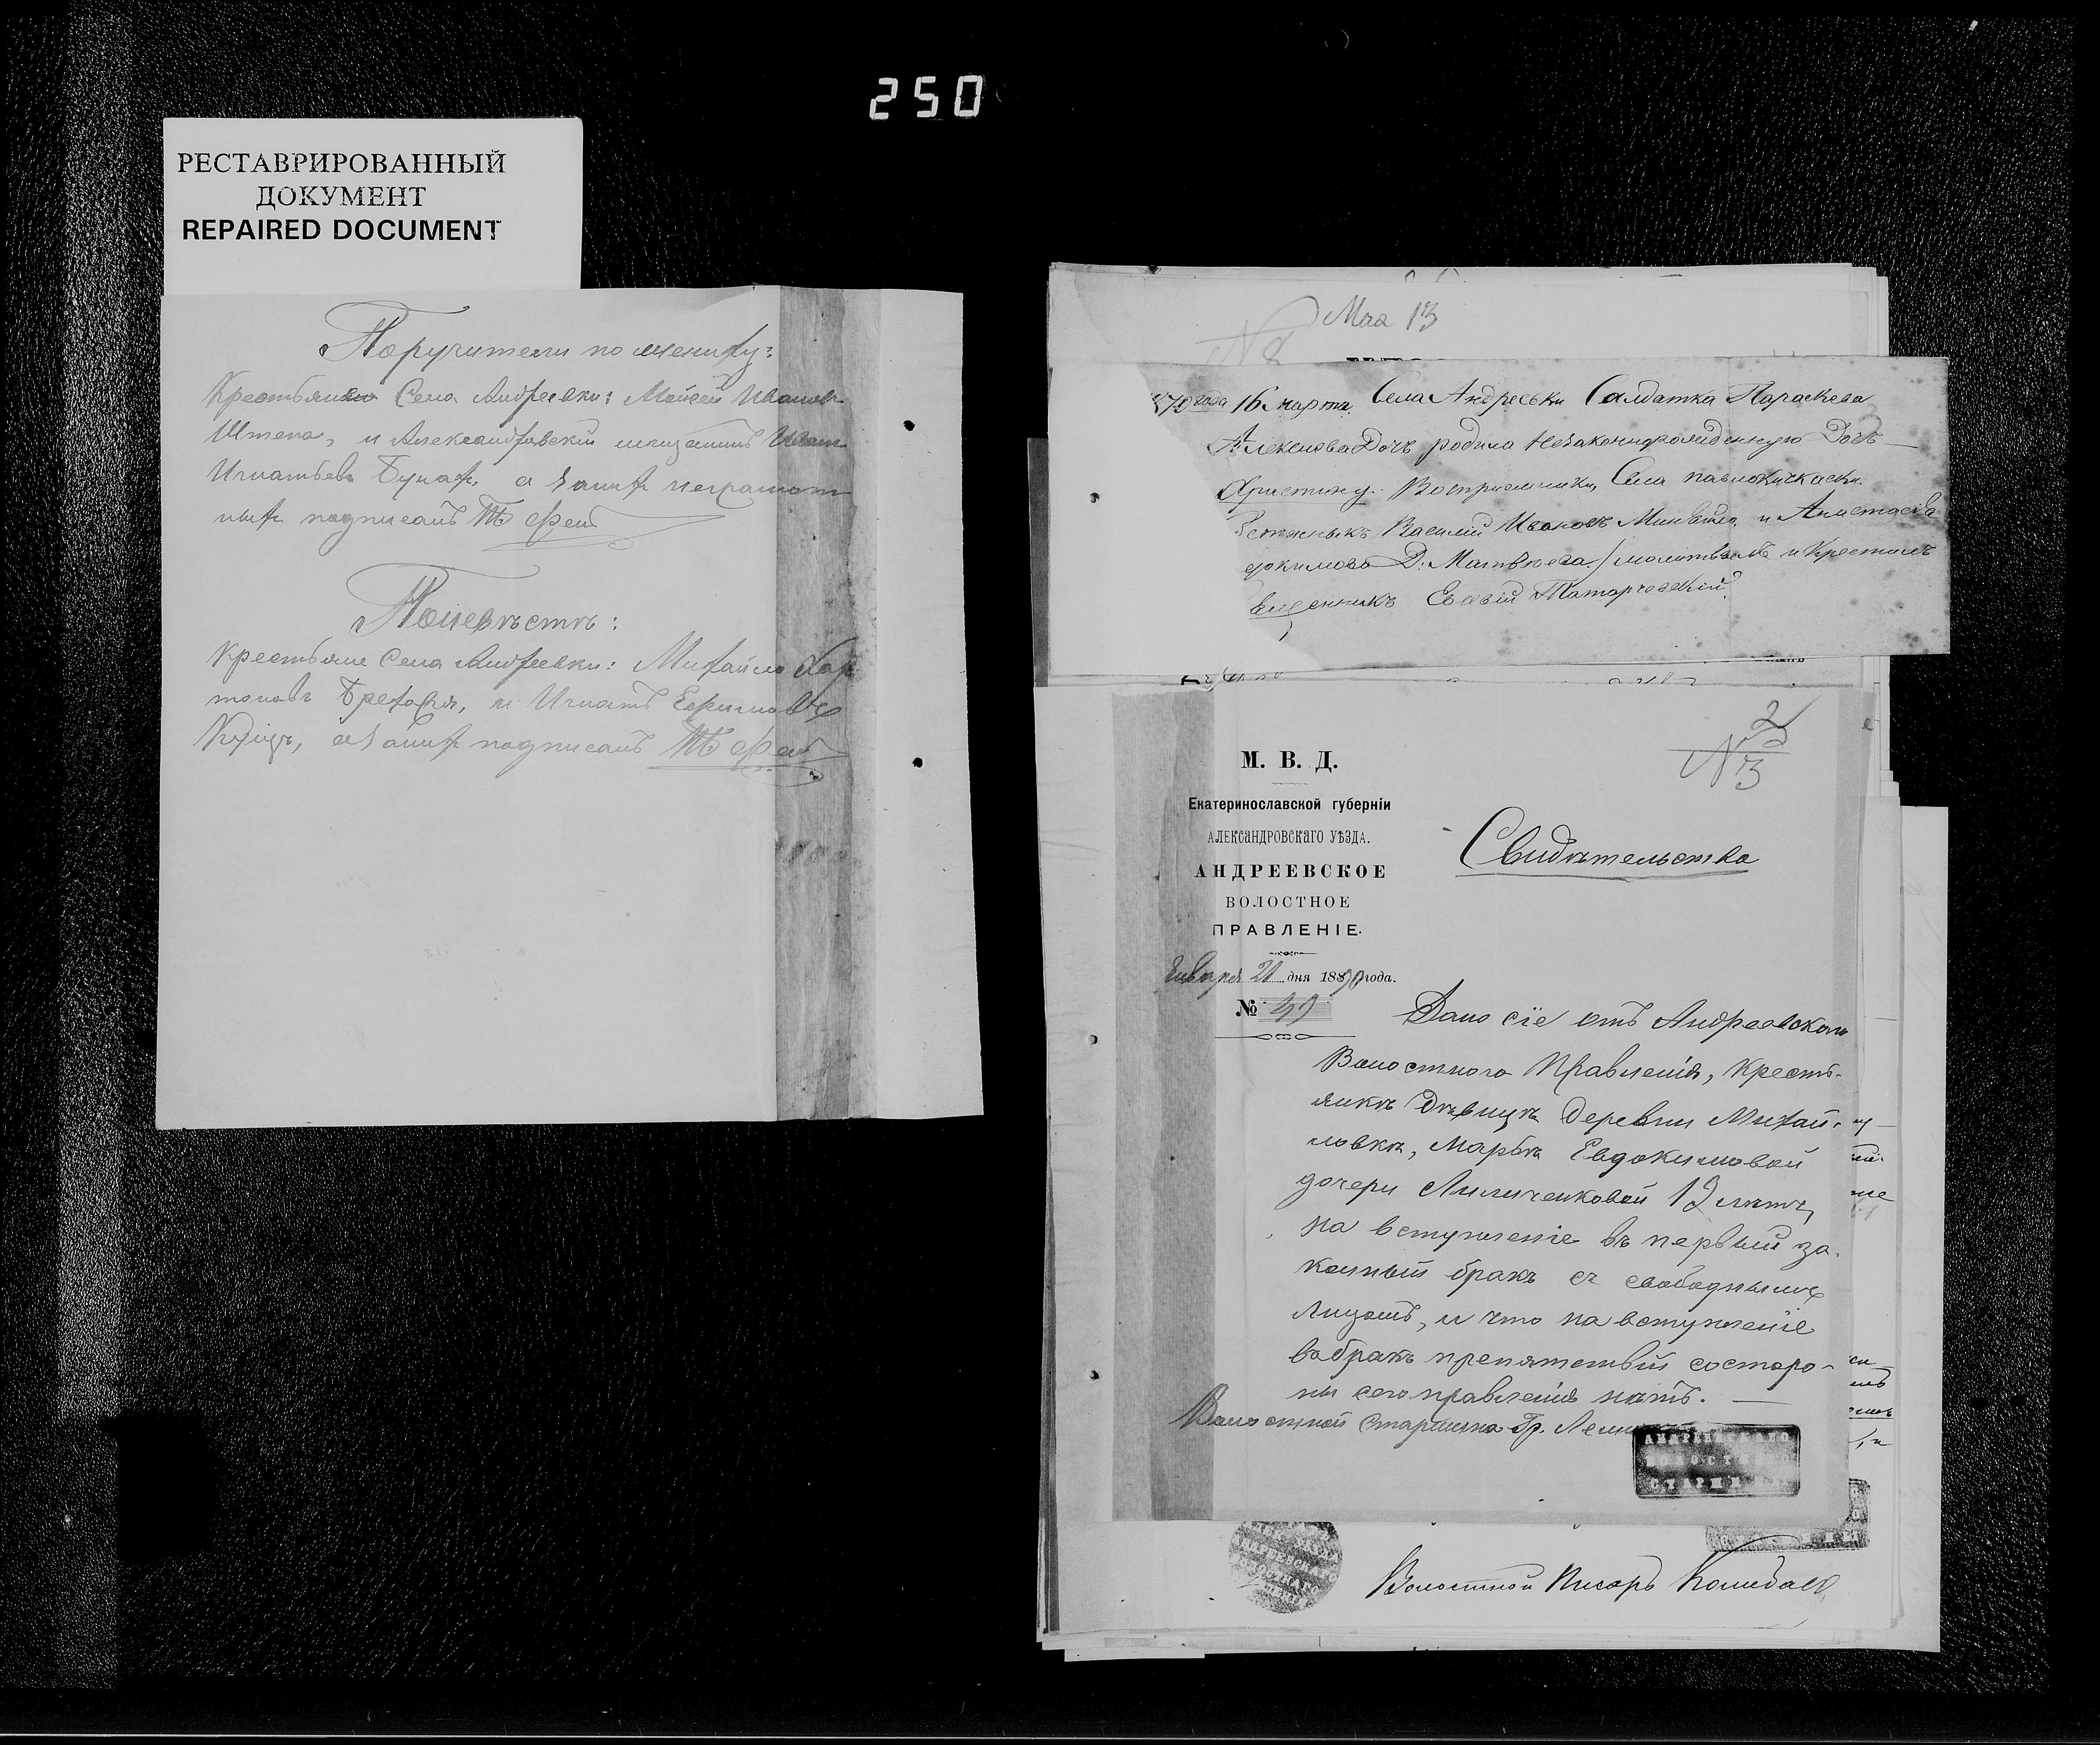 250
РЕСТАВРИРОВАННЫЙ
ДОКУМЕНТ
REPAIRED DOCUMENT
Поручители по жениху:
Крестьяне Села Андреевки: Мойсей Иванов
Штепа, и Александровский мещанинъ Иван
Игнатьевъ а за них неграмот
ных подписалъ
По невѣстѣ:
Крестьяне Села Андреевки: Михайло Хар
тоновъ и Игнатъ Ефимовъ
а за них подписалъ
Мая 13
70 года 16 марта. Села Андреевки Салдатка Параскева
Алексѣева Дочь родила незаконнорожденную Дочь
Христину. Восприемники, Села павлокичкаски
Василий Ивановъ и Анастасія
докимова Д. Матвѣева. / молитвовалъ и Крестилъ
вященникъ Евсевій Татарчевскій.
2
№ 3
М. В. Д.
Екатеринославской губерніи
АЛЕКСАНДРОВСКАГО УѢЗДА.
АНДРЕЕВСКОЕ
ВОЛОСТНОЕ
ПРАВЛЕНІЕ.
Января 21 дня 1890 года.
№ 39
Свидѣтельство
Дано сіе отъ Андреевскаго
Волостного Правленія, Кресть-
янкѣ Дѣвицѣ деревни Михай-
ловки, Марьѣ Евдокимовой
дочери Линиченковой 19 лѣтъ,
на вступленіе въ первый за-
конный бракъ съ свободнымъ
лицомъ, и что на вступленіе
въ бракъ препятствій со сторо-
ны сего правленія нѣтъ.
Волостной Старшина Гр.
Волостной Писарь